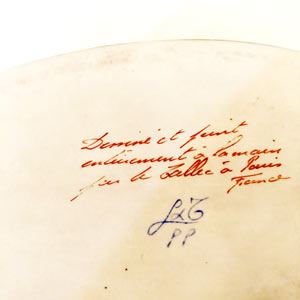 Dessiné et peint
entièrement à la main
par Le Tallec à Paris
France
LxT
PP